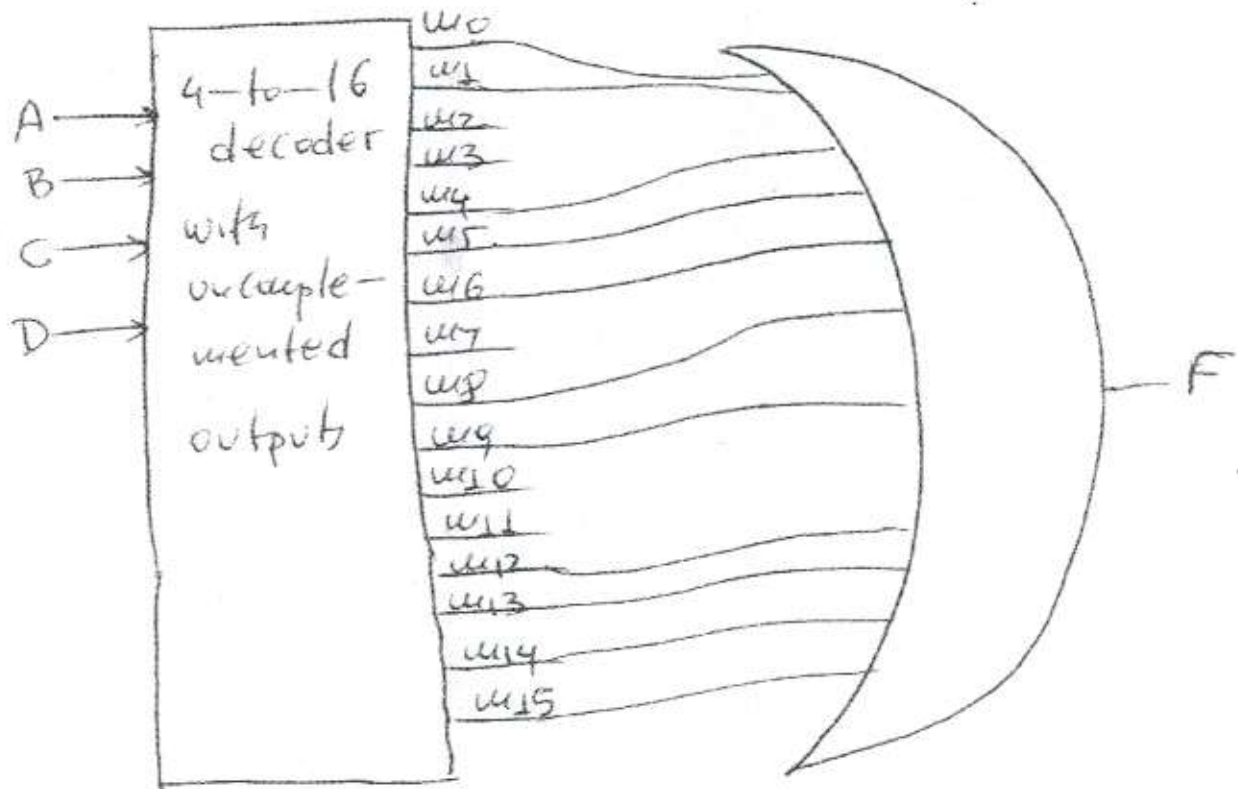 A
B
C
D
4-to-16
decoder
with
uncomple-
mented
outputs
m0
m1
m2
m3
m4
m5
m6
m7
m8
m9
m10
m11
m12
m13
m14
m15
F